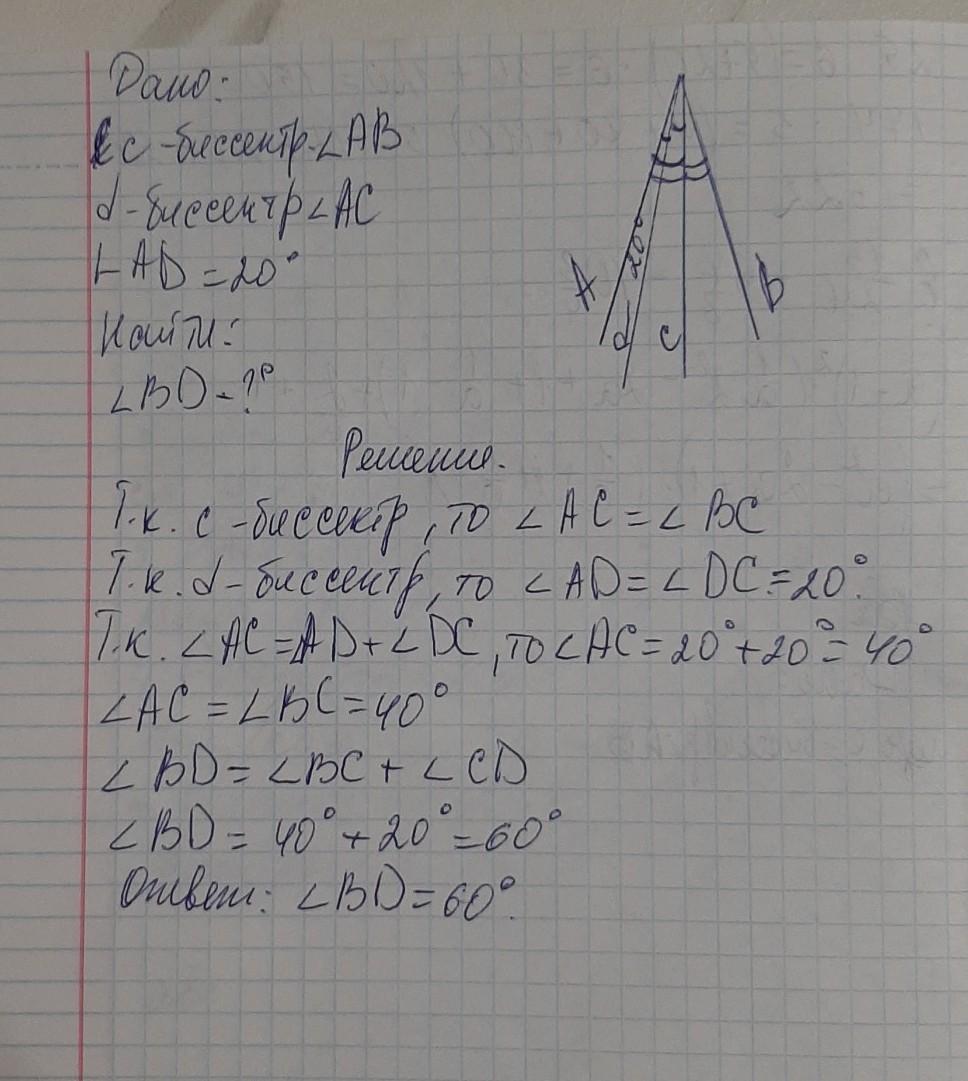 Дано:
с -биссектр. ∠AB
d -биссектр ∠AC
∠AD = 20°
Найти:
∠BD - ?°
20°
A
d
c
B
Решение.
Т.к. с -биссектр, то ∠AC = ∠BC
Т.к. d -биссектр, то ∠AD = ∠DC = 20°.
Т.к. ∠AC = AD + ∠DC, то ∠AC = 20° + 20° = 40°
∠AC = ∠BC = 40°
∠BD = ∠BC + ∠CD
∠BD = 40° + 20° = 60°
Ответ: ∠BD = 60°.